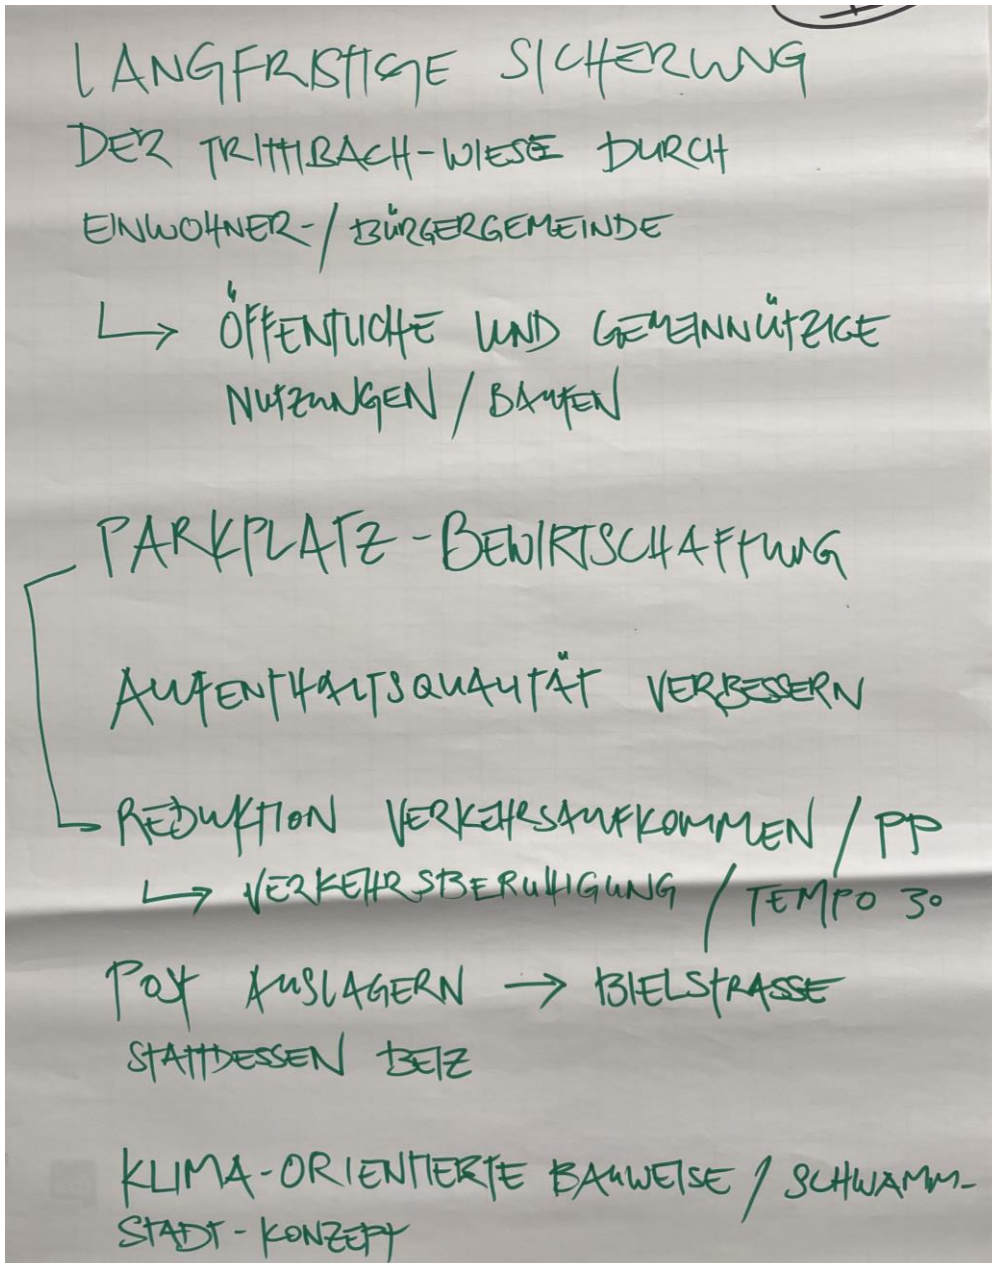 LANGFRISTIGE SICHERUNG
DER TRITTIBACH-WIESE DURCH
EINWOHNER-/BÜRGERGEMEINDE
↳ ÖFFENTLICHE UND GEMEINNÜTZIGE
NUTZUNGEN / BAUTEN
PARKPLATZ-BEWIRTSCHAFTUNG
AUFENTHALTSQUALITÄT VERBESSERN
REDUKTION VERKEHRSAUFKOMMEN / PP
↳ VERKEHRSBERUHIGUNG / TEMPO 30
POST AUSLAGERN → BIELSTRASSE
STATTDESSEN BEIZ
KLIMA-ORIENTIERTE BAUWEISE / SCHWAMM-
STADT-KONZEPT